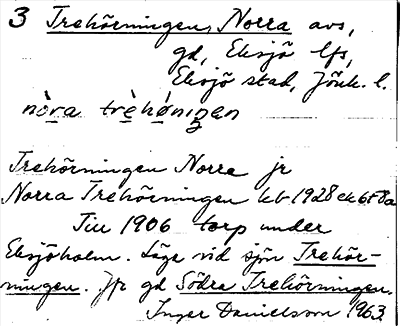 3 Trehörningen, Norra avs,
gd, Eksjö lfs,
Eksjö stad, Jönk. l.
nòra trèhøniŋen
Trehörningen Norra jr
Norra Trehörningen kb 1928 ek 6F8a
Till 1906 torp under
Eksjöholm. Läge vid sjön Trehör-
ningen. Jfr gd Södra Trehörningen.
Inger Danielsson 1963